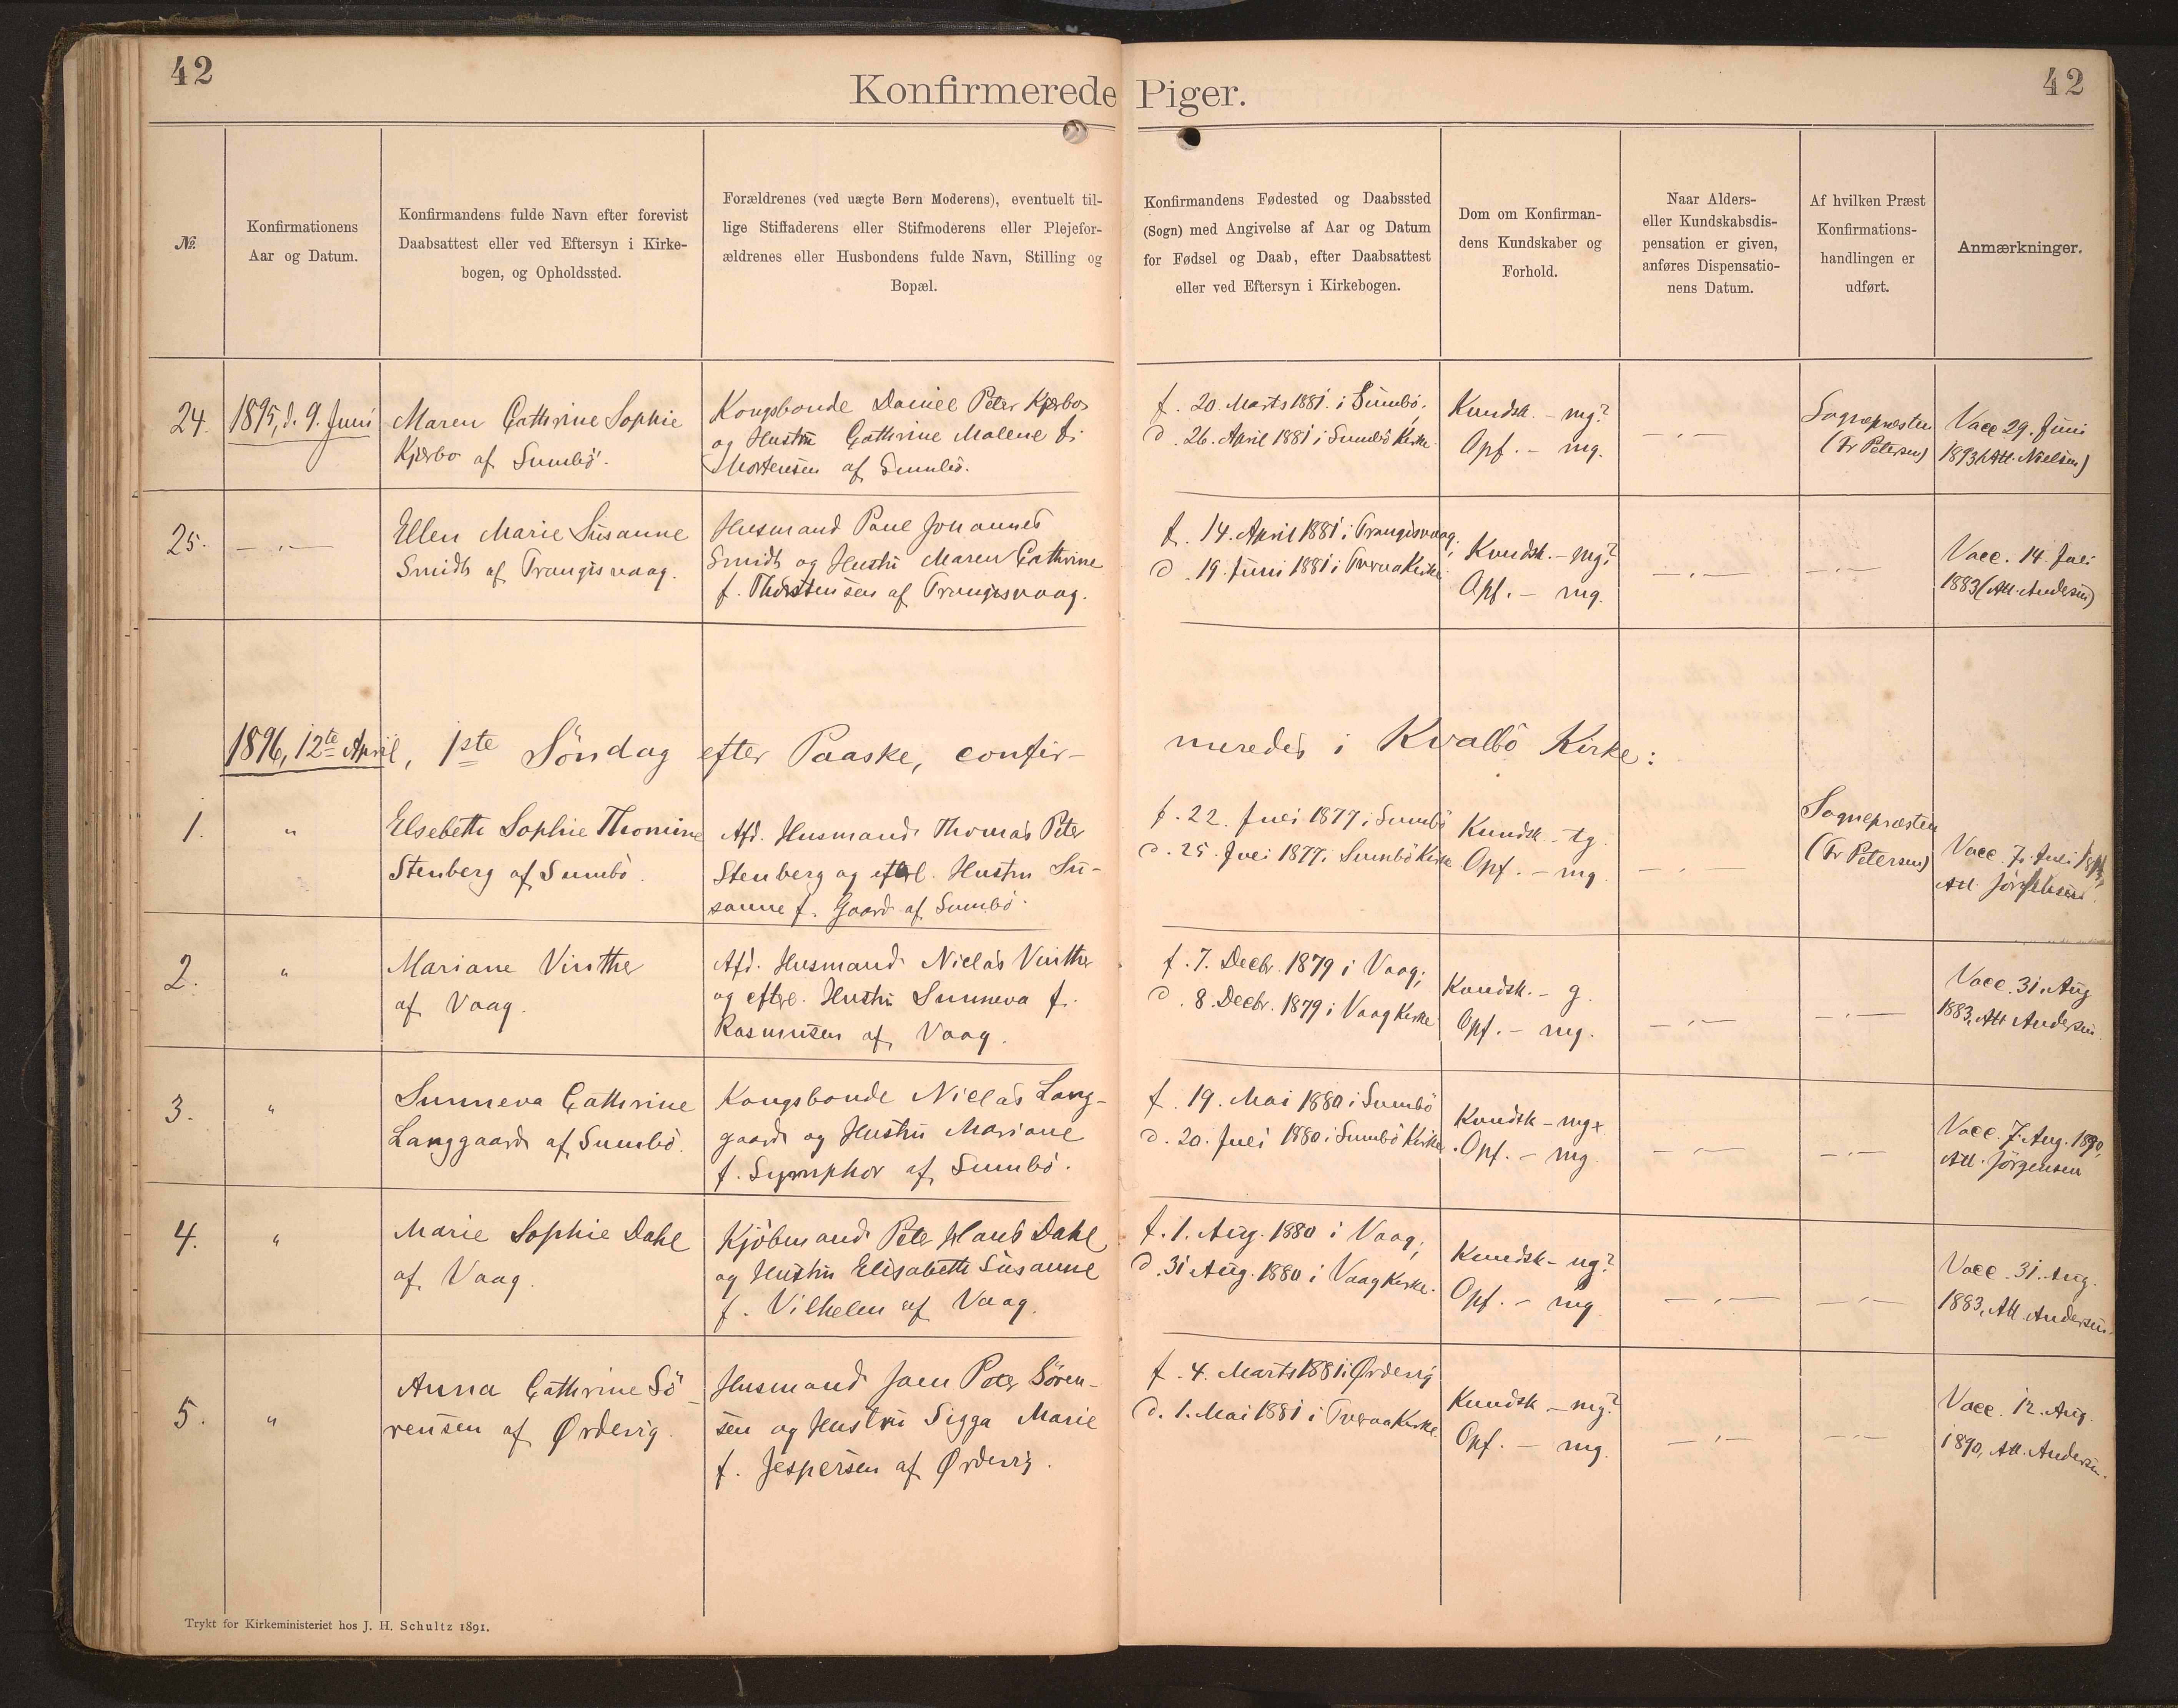 42
42
Konfirmerede Piger.
№.
Konfirmationens
Aar og Datum.
Konfirmandens fulde Navn efter forevist
Daabsattest eller ved Eftersyn i Kirke-
bogen, og Opholdssted.
Forældrenes (ved uægte Børn Moderens), eventuelt til-
lige Stiffaderens eller Stifmoderens eller Plejefor-
ældrenes eller Husbondens fulde Navn, Stilling og
Bopæl.
Konfirmandens Fødested og Daabssted
(Sogn) med Angivelse af Aar og Datum
for Fødsel og Daab, efter Daabsattest
eller ved Eftersyn i Kirkebogen.
Dom om Konfirman-
dens Kundskaber og
Forhold.
Naar Alders-
eller Kundskabsdis-
pensation er given,
anføres Dispensatio-
nens Datum.
Af hvilken Præst
Konfirmations-
handlingen er
udført.
Anmærkninger.
24.
1895, d. 9. Juni
Maren Cathrine Sophie
Kjærbo af Sumbö.
Kongsbonde Daniel Peter Kjærbo
og Hustru Cathrine Malene f.
Mortensen af Sumbö.
f. 20. Marts 1881. i Sumbö.
d. 26. April 1881 i Sumbö Kirke.
Kundsk. - mg?
Opf. - mg.
- „ -
Sognepræsten
(Fr Petersen)
Vacc 29. Juni
1893 (Att. Nielsen)
25.
- „ -
Ellen Marie Susanne
Smidt af Trangisvaag.
Husmand Poul Johannes
Smidt og Hustru Maren Cathrine
f. Thorstensen af Trangisvaag.
f. 14. April 1881 i Trangisvaag;
d. 19. Juni 1881 i Tveraa Kirke
Kundsk. - mg?
Opf. - mg.
- „ -
- „ -
Vacc. 14. Juli
1883 (Att. Andersen)
1896, 12te April, 1ste Söndag efter Paaske, confir- meredes i Kvalbö Kirke:
1.
"
Elsebeth Sophie Thomine
Stenberg af Sumbö.
Afd. Husmand Thomas Peter
Stenberg og efterl. Hustru Su-
sanne f. Gaard af Sumbö.
f. 22. Juli 1877 i Sumbö
d. 25. Juli 1877 i Sumbö Kirke
Kundsk. - tg.
Opf. - mg.
- „ -
Sognepræsten
(Fr Petersen)
Vacc. 7. Juli
Att.
2.
"
Mariane Vinther
af Vaag.
Afd. Husmand Niclas Vinther
og efterl. Hustru Sunneva f.
Rasmussen af Vaag.
f. 7. Decbr. 1879 i Vaag;
d. 8. Decbr. 1879 i Vaag Kirke
Kundsk. - g.
Opf. - mg.
- „ -
- „ -
Vacc. 31. Aug
1883, Att Andersen.
3.
"
Sunneva Cathrine
Langgaard af Sumbö.
Kongsbonde Niclas Lang-
gaard og Hustru Mariane
f. Symphor af Sumbö.
f. 19. Mai 1880 i Sumbö
d. 20. Juli 1880 i Sumbö Kirke
Kundsk - mg+
Opf. - mg.
- „ -
- „ -
Vacc. 7. Aug. 1890,
Att. Jörgensen
4.
"
Marie Sophie Dahl
af Vaag.
Kjöbmand Peter Hans Dahl
og Hustru Elisabeth Susanne
f. Vilhelm af Vaag.
f. 1. Aug. 1880 i Vaag;
d. 31 Aug. 1880 i Vaag Kirke.
Kundsk - ug?
Opf. - mg
- „ -
- „ -
Vacc. 31. Aug.
1883, Att. Andersen.
5.
"
Anna Cathrine Sö-
rensen af Ørdevig.
Husmand Joen Peter Sören-
sen og Hustru Sigga Marie
f. Jespersen af Ørdevig.
f. 4. Marts 1881 i Ørdevig
d. 1. Mai 1881 i Tveraa Kirke.
Kundsk - mg?
Opf. - mg.
- „ -
- „ -
Vacc. 12. Aug.
1890, Att. Andersen.
Trykt for Kirkeministeriet hos J. H. Schultz 1891.